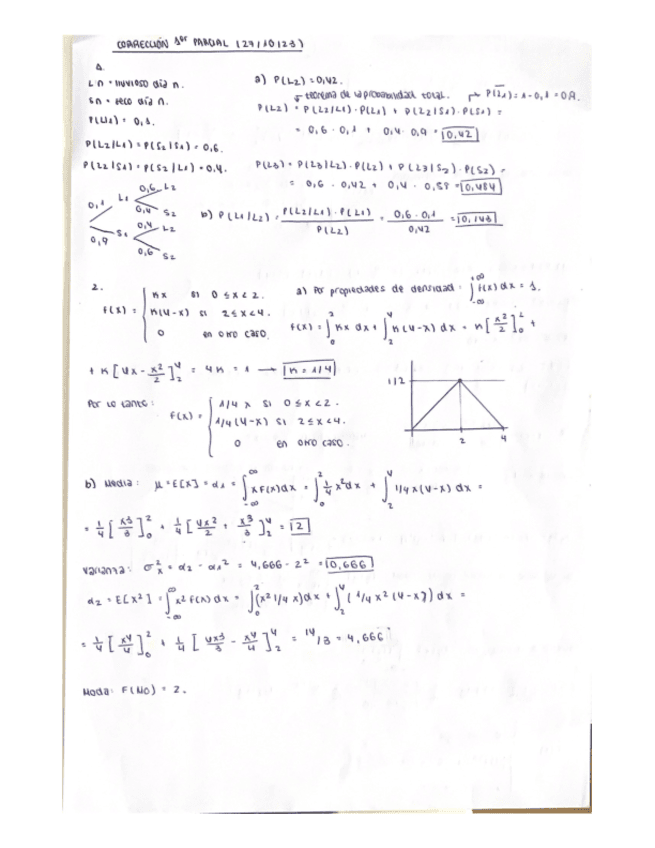 CORRECCIÓN 1er PARCIAL (27/10/23)
1.
Ln = lluvioso día n.
Sn = seco día n.
P(L1) = 0,1.
P(L2/L1) = P(S2/S1) = 0,6.
P(L2/S1) = P(S2/L1) = 0,4.
0,1 L1 0,6 L2
0,4 S2
0,9 S1 0,4 L2
0,6 S2
a) P(L2) = 0,42.
teorema de la probabilidad total. P(L1) = 1-0,1 = 0,9.
P(L2) = P(L2/L1)·P(L1) + P(L2/S1)·P(S1) =
= 0,6 · 0,1 + 0,4 · 0,9 = 0,42
P(L3) = P(L3/L2)·P(L2) + P(L3/S2)·P(S2) =
= 0,6 · 0,42 + 0,4 · 0,58 = 0,484
b) P(L1/L2) = P(L2/L1)·P(L1) / P(L2) = 0,6 · 0,1 / 0,42 = 0,143
2.
f(x) = { Kx si 0 ≤ x < 2.
K(4-x) si 2 ≤ x < 4.
0 en otro caso.
a) Por propiedades de densidad: ∫_{-∞}^{+∞} f(x) dx = 1.
f(x) = ∫_0^2 Kx dx + ∫_2^4 K(4-x) dx = K[x²/2]_0^2 +
+ K[4x - x²/2]_2^4 = 4K = 1 → K = 1/4
Por lo tanto:
f(x) = { 1/4 x si 0 ≤ x < 2.
1/4 (4-x) si 2 ≤ x < 4.
0 en otro caso.
1/2
2 4
b) Media: μ = E[X] = α1 = ∫_{-∞}^{∞} x f(x) dx = ∫_0^2 1/4 x² dx + ∫_2^4 1/4 x (4-x) dx =
= 1/4 [x³/3]_0^2 + 1/4 [4x²/2 + x³/3]_2^4 = 2
Varianza: σ²x = α2 - α1² = 4,666 - 2² = 0,666
α2 = E[X²] = ∫_{-∞}^{∞} x² f(x) dx = ∫_0^2 (x² 1/4 x) dx + ∫_2^4 (1/4 x² (4-x)) dx =
= 1/4 [x⁴/4]_0^2 + 1/4 [4x³/3 - x⁴/4]_2^4 = 14/3 = 4,666
Moda: F(Mo) = 2.